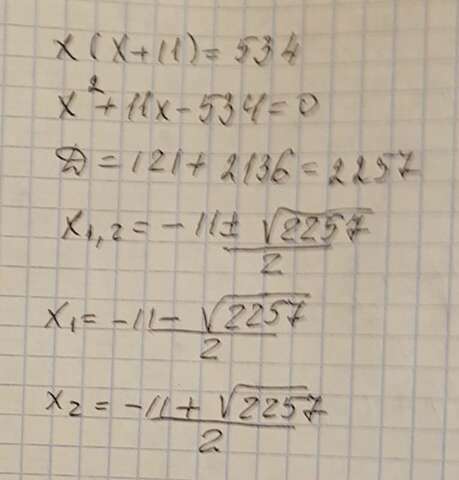 x(x+11)=534
x²+11x-534=0
D=121+2136=2257
x₁,₂=-11±√2257/2
x₁=-11-√2257/2
x₂=-11+√2257/2